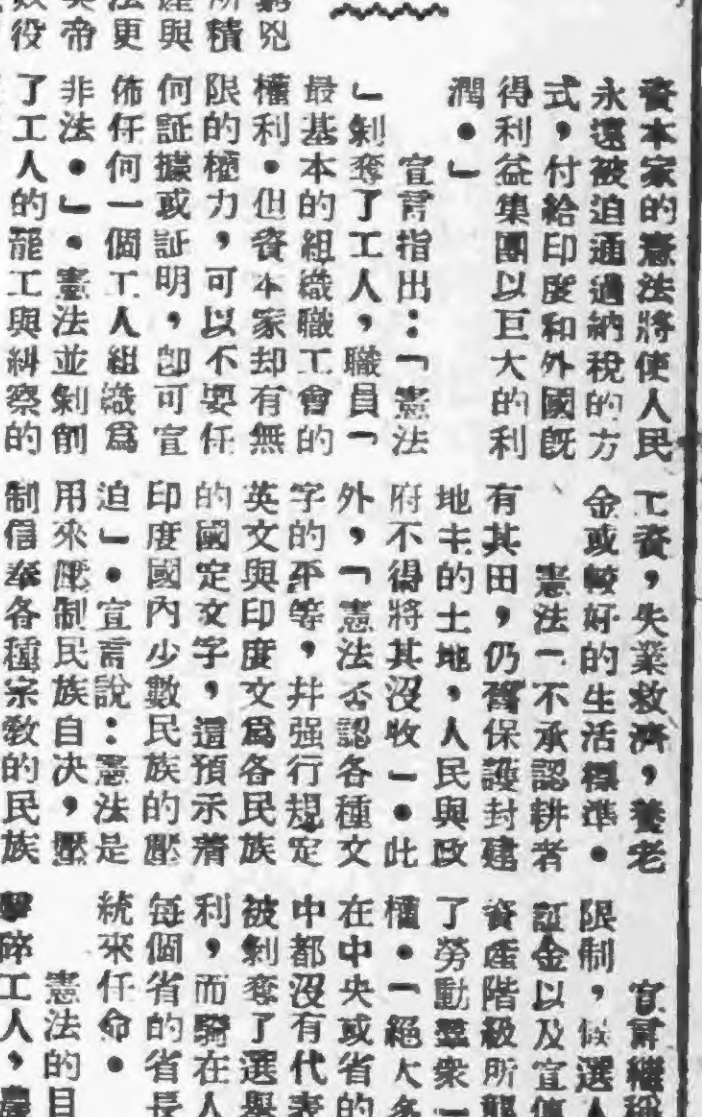 窮兇
所積
產與
法更
英帝
奴役
資本家的憲法將使人民
永遠被迫通過納稅的方
式，付給印度和外國旣
得利益集團以巨大的利
潤。」
宣言指出：「憲法
」剝奪了工人，職員「
最基本的組織職工會的
權利。但資本家却有無
限的權力，可以不要任
何証據或証明，卽可宣
佈任何一個工人組織爲
非法。」。憲法並剝削
了工人的罷工與糾察的
工資，失業救濟，養老
金或較好的生活標準。
憲法「不承認耕者
有其田，仍舊保護封建
地主的土地，人民與政
府不得將其沒收」。此
外，「憲法否認各種文
字的平等，幷强行規定
英文與印度文爲各民族
的國定文字，還預示着
印度國內少數民族的壓
迫」。宣言說：憲法是
用來壓制民族自决，壓
制信奉各種宗教的民族
宣言繼稱
限制，候選人
証金以及宣傳
資產階級所壟
了勞動羣衆「
權。「絕大多
在中央或省的
中都沒有代表
被剝奪了選舉
利，而騎在人
每個省的省長
統來任命。
憲法的目
擊碎工人，農